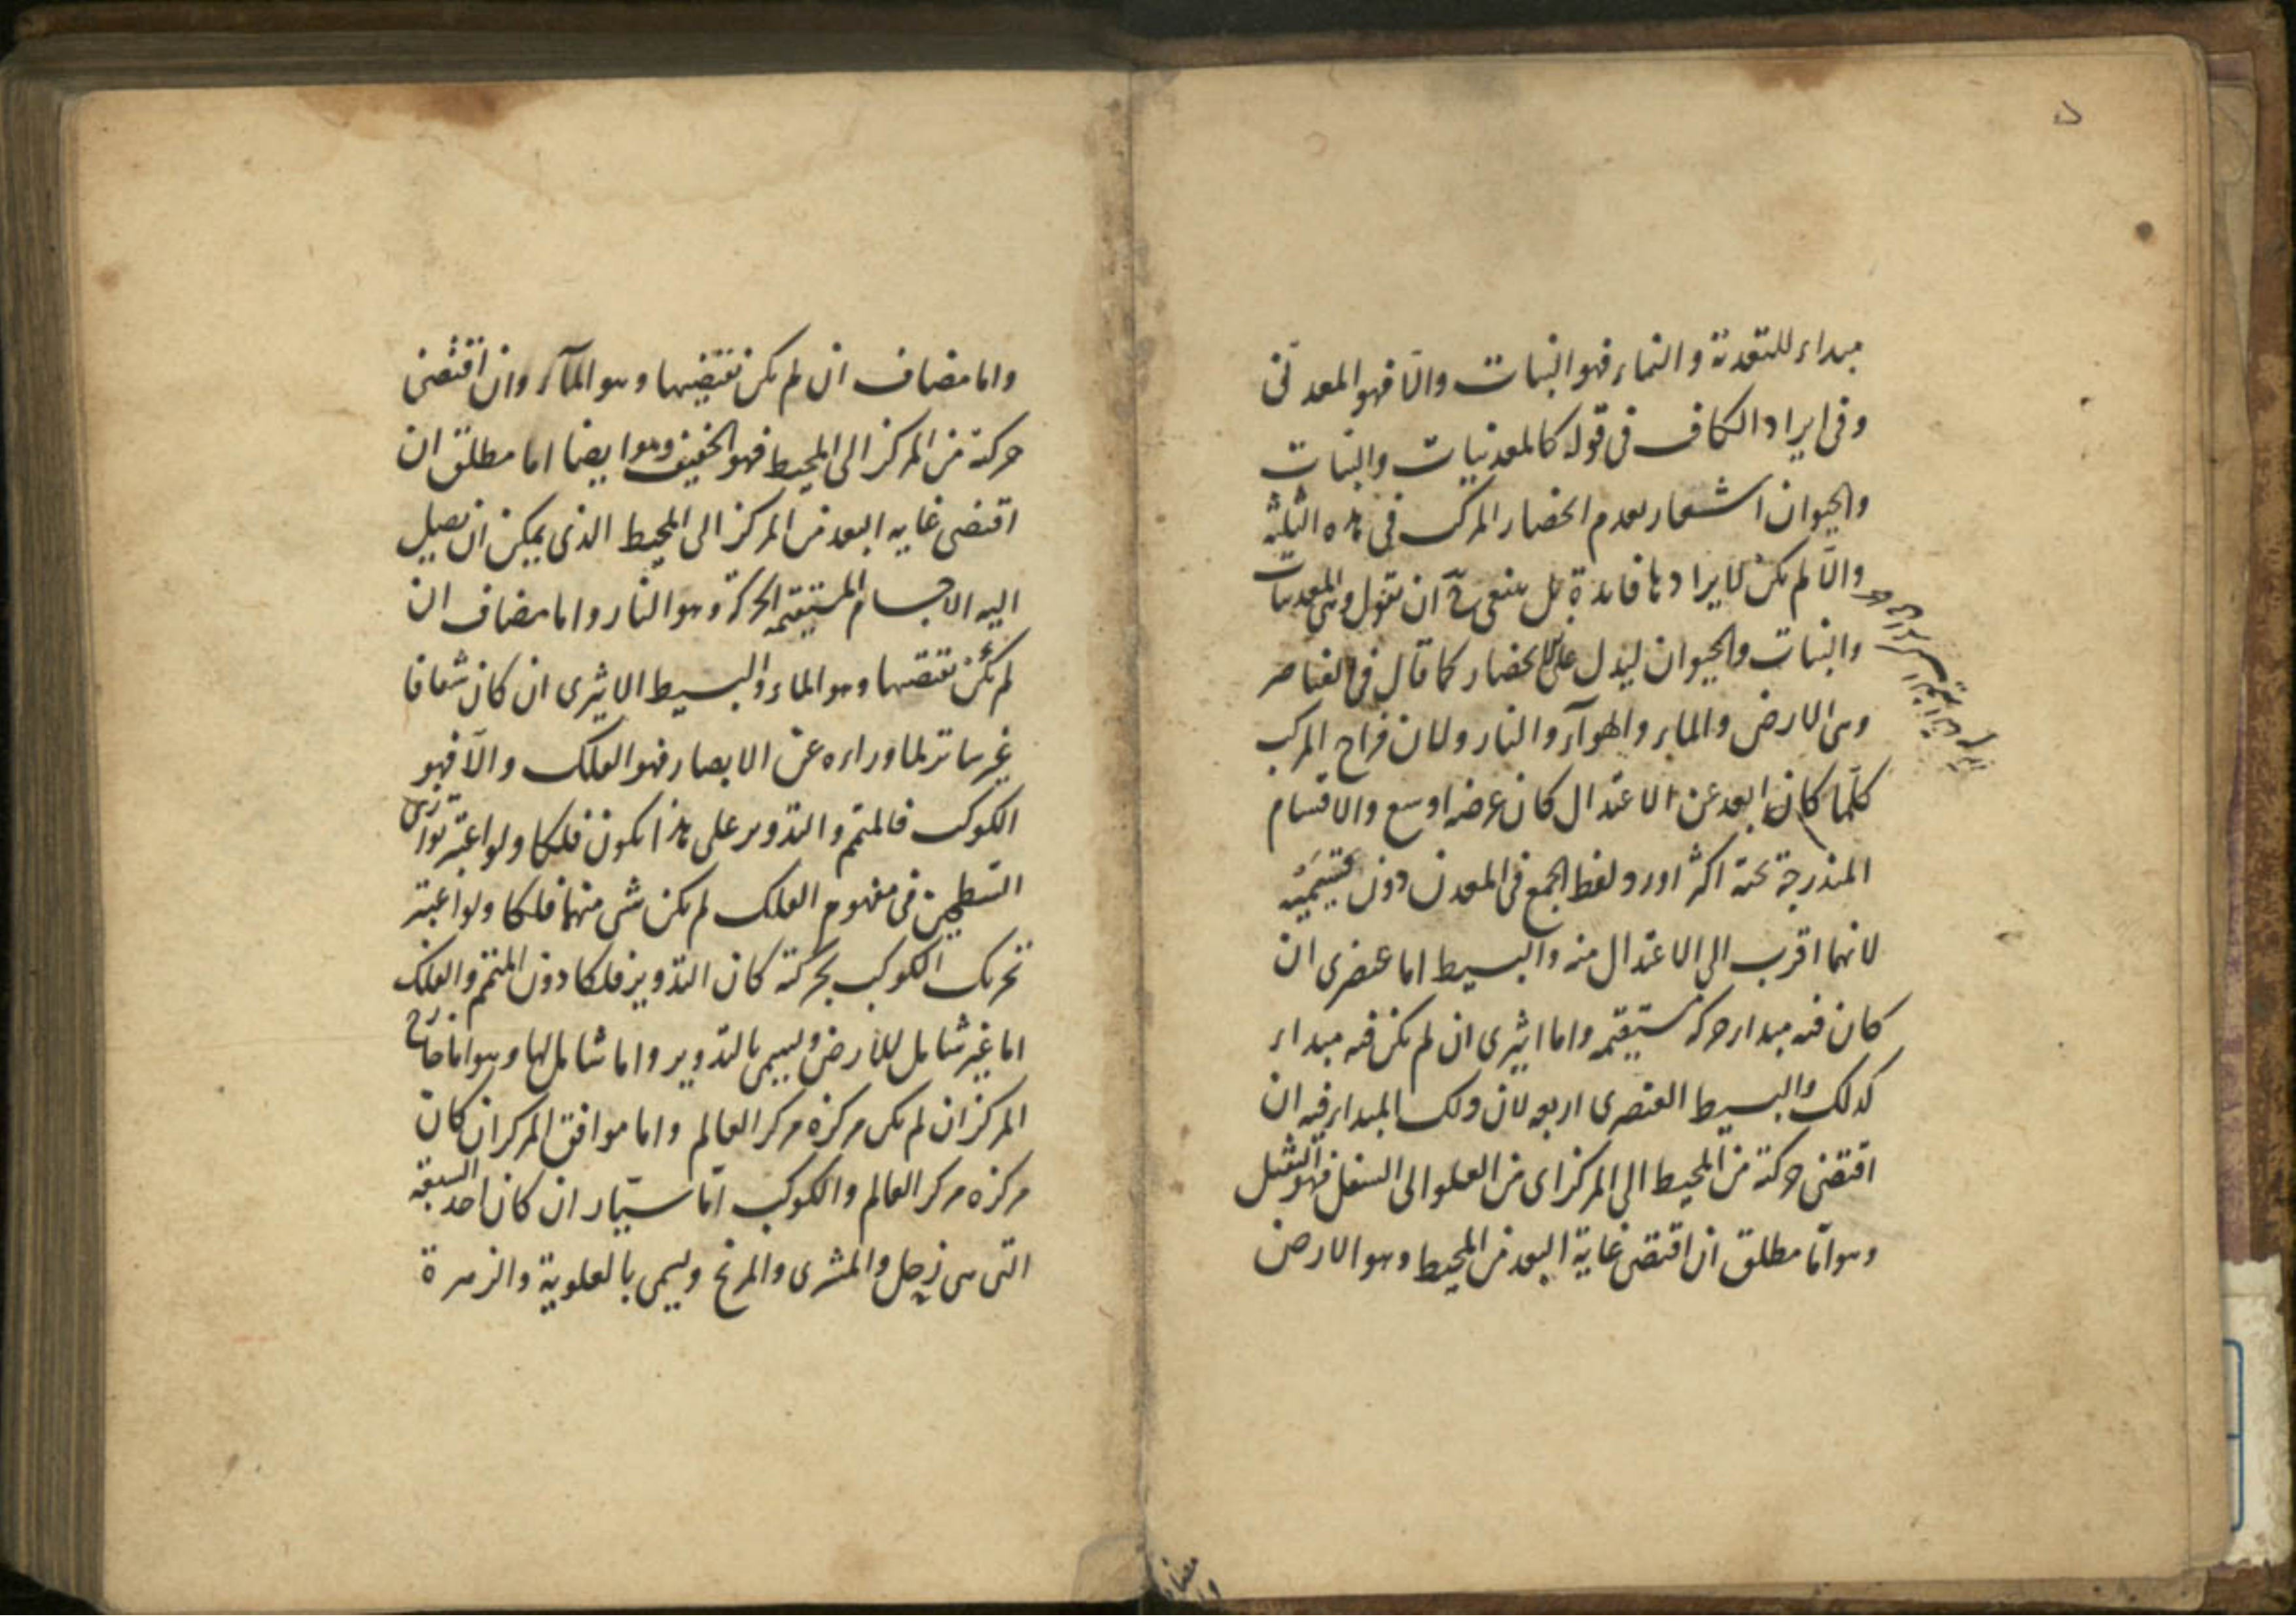 مبداء للتغذية والنماء فهو النبات والّا فهو المعدنى
وفى ايراد الكاف فى قوله كالمعدنيات والنبات
والحيوان اشعار بعدم انحصار المركب فى هذه الثلثة
والّا لم يكن لايرادها فايدة بل ينبغى ح ان تقول وهى المعدنيات
والنبات والحيوان ليدل على الانحصار كما قال فى العناصر
وهى الارض والماء والهوآء والنار ولان مزاج المركب
كلّما كان ابعد عن الاعتدال كان عرضه اوسع والاقسام
المندرجة تحته اكثر اورد لفظ الجمع فى المعدن دون قسيميه
لانهما اقرب الى الاعتدال منه والبسيط اما عنصرى ان
كان فيه مبداء حركة مستقيمة واما اثيرى ان لم يكن فيه مبداء
كذلك والبسيط العنصرى اربعة لان ذلك المبداء فيه ان
اقتضى حركة من المحيط الى المركز اى من العلو الى السفل فهو الثقيل
وهو امّا مطلق ان اقتضى غاية البعد من المحيط وهو الارض
واما مضاف ان لم يكن تقتضيها وهو المآء وان اقتضى
حركة من المركز الى المحيط فهو الخفيف وهو ايضا اما مطلق ان
اقتضى غاية البعد من المركز الى المحيط الذى يمكن ان تصل
اليه الاجسام المستقيمة الحركة وهو النار واما مضاف ان
لم يكن تقتضيها وهو الماء والبسيط الاثيرى ان كان شفافا
غير ساتر لما وراءه عن الابصار فهو الفلك والّا فهو
الكوكب فالمتمم والتدوير على هذا يكون فلكا ولو اعتبر توازى
السطحين فى مفهوم الفلك لم يكن شى منهما فلكا ولو اعتبر
تحريك الكوكب بحركته كان التدوير فلكا دون المتمم والفلك
اما غير شامل للارض ويسمى بالتدوير واما شامل لها وهو اما خارج
المركز ان لم يكن مركزه مركز العالم واما موافق المركز ان كان
مركزه مركز العالم والكوكب امّا سيّار ان كان احد السبعة
التى هى زحل والمشترى والمريخ ويسمى بالعلوية والزهرة